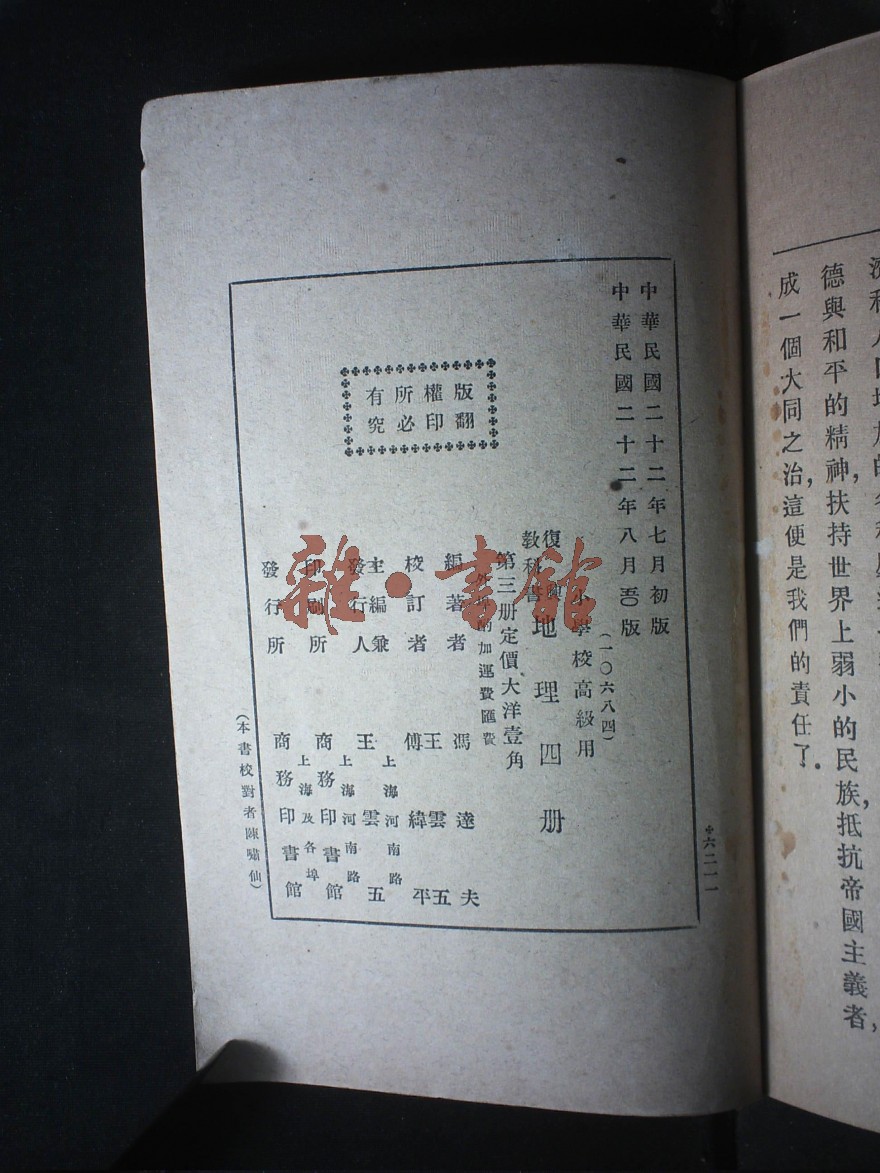 成一個大同之治，這便是我們的責任了。
德與和平的精神，扶持世界上弱小的民族，抵抗帝國主義者，
中華民國二十二年七月初版
中華民國二十二年八月五〇版
（一〇六八四）
小學校高級用
復興
教科書
地理四册
第三册定價大洋壹角
外埠酌加運費匯費
版權所有
翻印必究
編著者 馮達夫
校訂者 王雲五
傅緯平
主編兼
發行人 王雲五
上海河南路
印刷所 商務印書館
上海河南路
發行所 商務印書館
上海及各埠
（本書校對者陳嘯仙）
六二一一
雜·書館